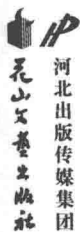 河北出版传媒集团
花山文艺出版社